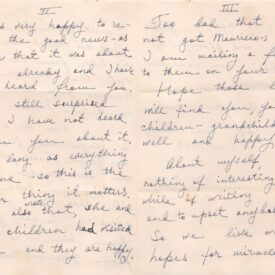 II
s very happy to re-
the good news - as
n that it was about
already and I have
heard from you.
still surprised
I have not heard
m you about it.
long as everything
ne - so this is the
n thing it matters.
wrote
also that, she and
children had visited
e - and they are happy.
III
Too bad that
not got Mauricio's
I am mailing a f
to them on your
Hope those l
will find you, yo
children - grandchild
well and happy.
About myself,
nothing of interestin
while of writing
and to upset anybod
So we live w
hopes for mirac